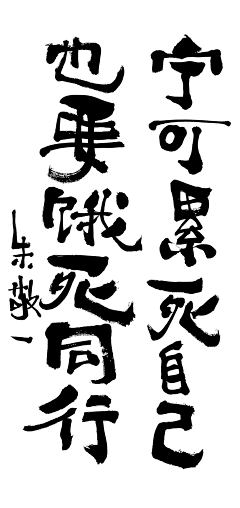 宁可累死自己
也要饿死同行
朱敬一